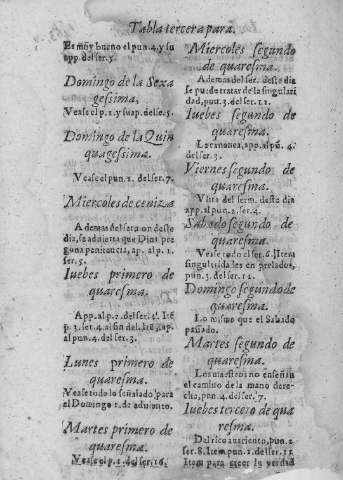 Tabla tercera para.
Es muy bueno el pun. 4. y su
app. del ser. 5.
Domingo de la Sexa
gessima,
Vease el p. 1. y su ap. del se. 5.
Domingo de la Quin
quagessima.
Vease el pun. 2. del ser. 7.
Miercoles de ceniza
Ademas del sermon deste
dia, se advierta que Dias
penitencia, ap. al p. 1.
ser. 5.
Iuebes primero de
quaresma.
App. al p. 2. del ser. 4. Itē
p. 3. ser. 4. al fin del. Itē, ap.
al pun. 4. del ser. 3.
Lunes primero de
quaresma.
Vease todo lo señalado para
el Domingo 1. de adviento.
Martes primero de
quaresma.
Vease el p. 1. del ser. 16.
Miercoles segundo
de quaresma.
Ademas del ser. deste dia
se puede tratar de la singulari
dad, punt. 3. del ser. 12.
Iuebes segundo de
quaresma.
La cananea, app. al pū. 4.
del ser. 3.
Viernes segundo de
quaresma.
Vltra del serm. deste dia
app. al pun. 2. ser. 4.
Sabado segundo de
quaresma.
Vease todo el ser. 5. Item
singularidades en prelados,
pun. 3. del ser. 12.
Domingo segundo de
quaresma.
Lo mismo que el Sabado
passado.
Martes segundo de
quaresma.
Los maestros no enseñan
el camino de la mano dere-
cha, pun. 4. del ser. 7.
Iuebes tercero de qua
resma.
Del rico avariento, pun. 2
ser. 8. Item pun. 2. del ser. 11
Item para creer la verdad